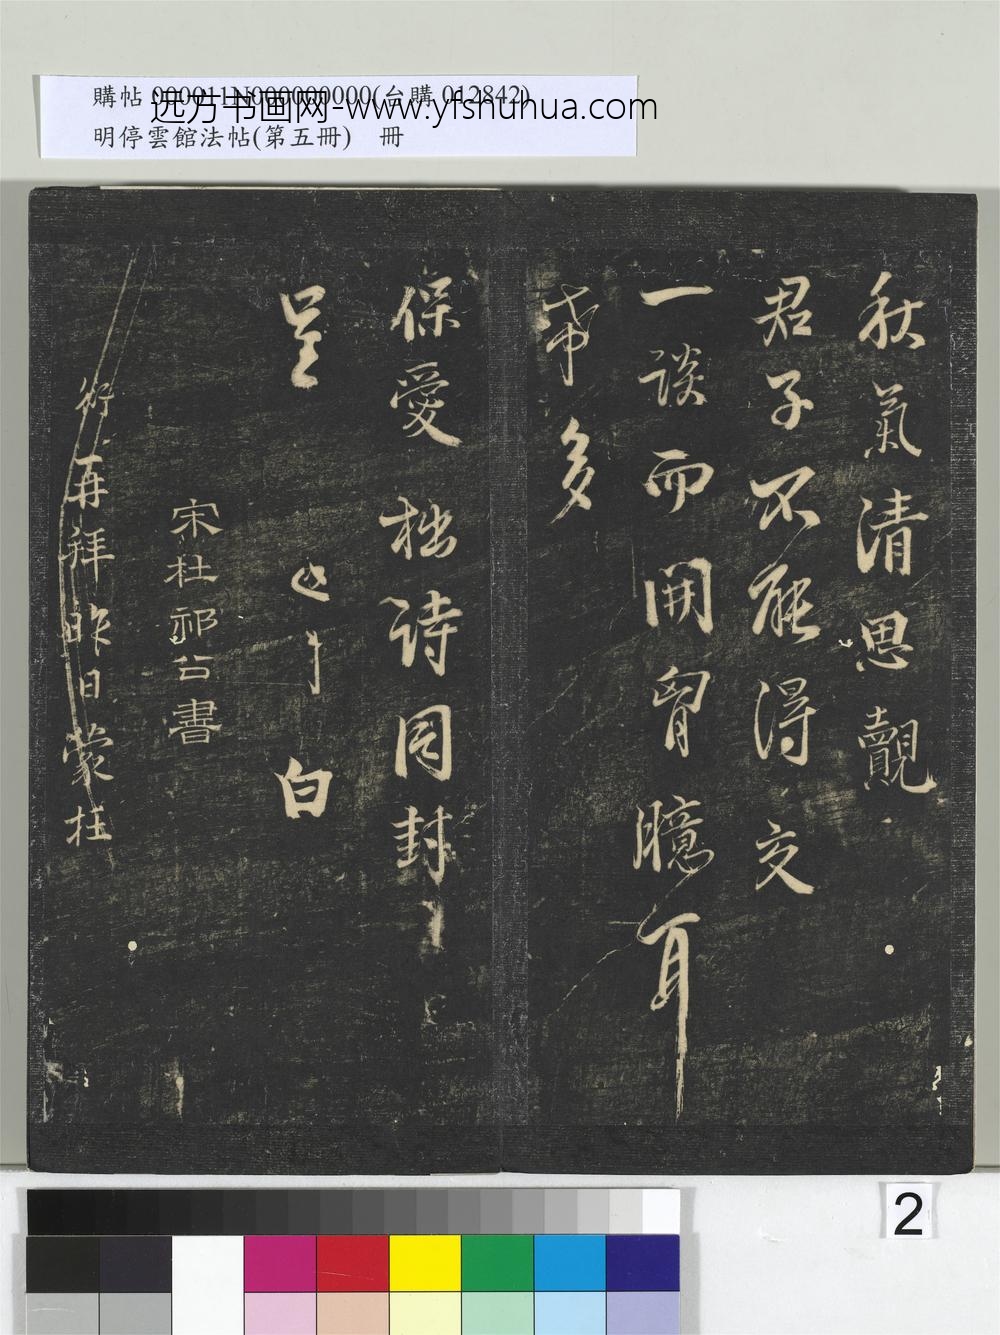 購帖 000011N000000000(台購 012842)
远方书画网-www.yfshuhua.com
明停雲館法帖(第五冊) 冊
秋氣清思覿
君子不能得交
一談而開胷臆耳
希多
保愛拙詩同封
呈 白
宋杜祁公書
衍再拜昨日蒙枉
2